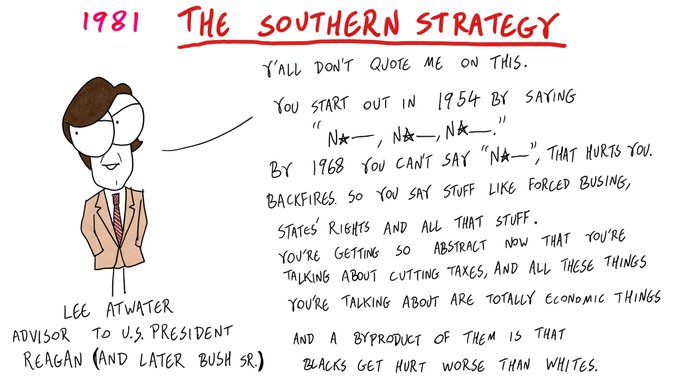 1981 THE SOUTHERN STRATEGY
Y'ALL DON'T QUOTE ME ON THIS.
YOU START OUT IN 1954 BY SAYING
"N☆—, N☆—, N☆—."
BY 1968 YOU CAN'T SAY "N☆—", THAT HURTS YOU.
BACKFIRES. SO YOU SAY STUFF LIKE FORCED BUSING,
STATES' RIGHTS AND ALL THAT STUFF.
YOU'RE GETTING SO ABSTRACT NOW THAT YOU'RE
TALKING ABOUT CUTTING TAXES, AND ALL THESE THINGS
YOU'RE TALKING ABOUT ARE TOTALLY ECONOMIC THINGS
AND A BYPRODUCT OF THEM IS THAT
BLACKS GET HURT WORSE THAN WHITES.
LEE ATWATER
ADVISOR TO U.S. PRESIDENT
REAGAN (AND LATER BUSH SR.)